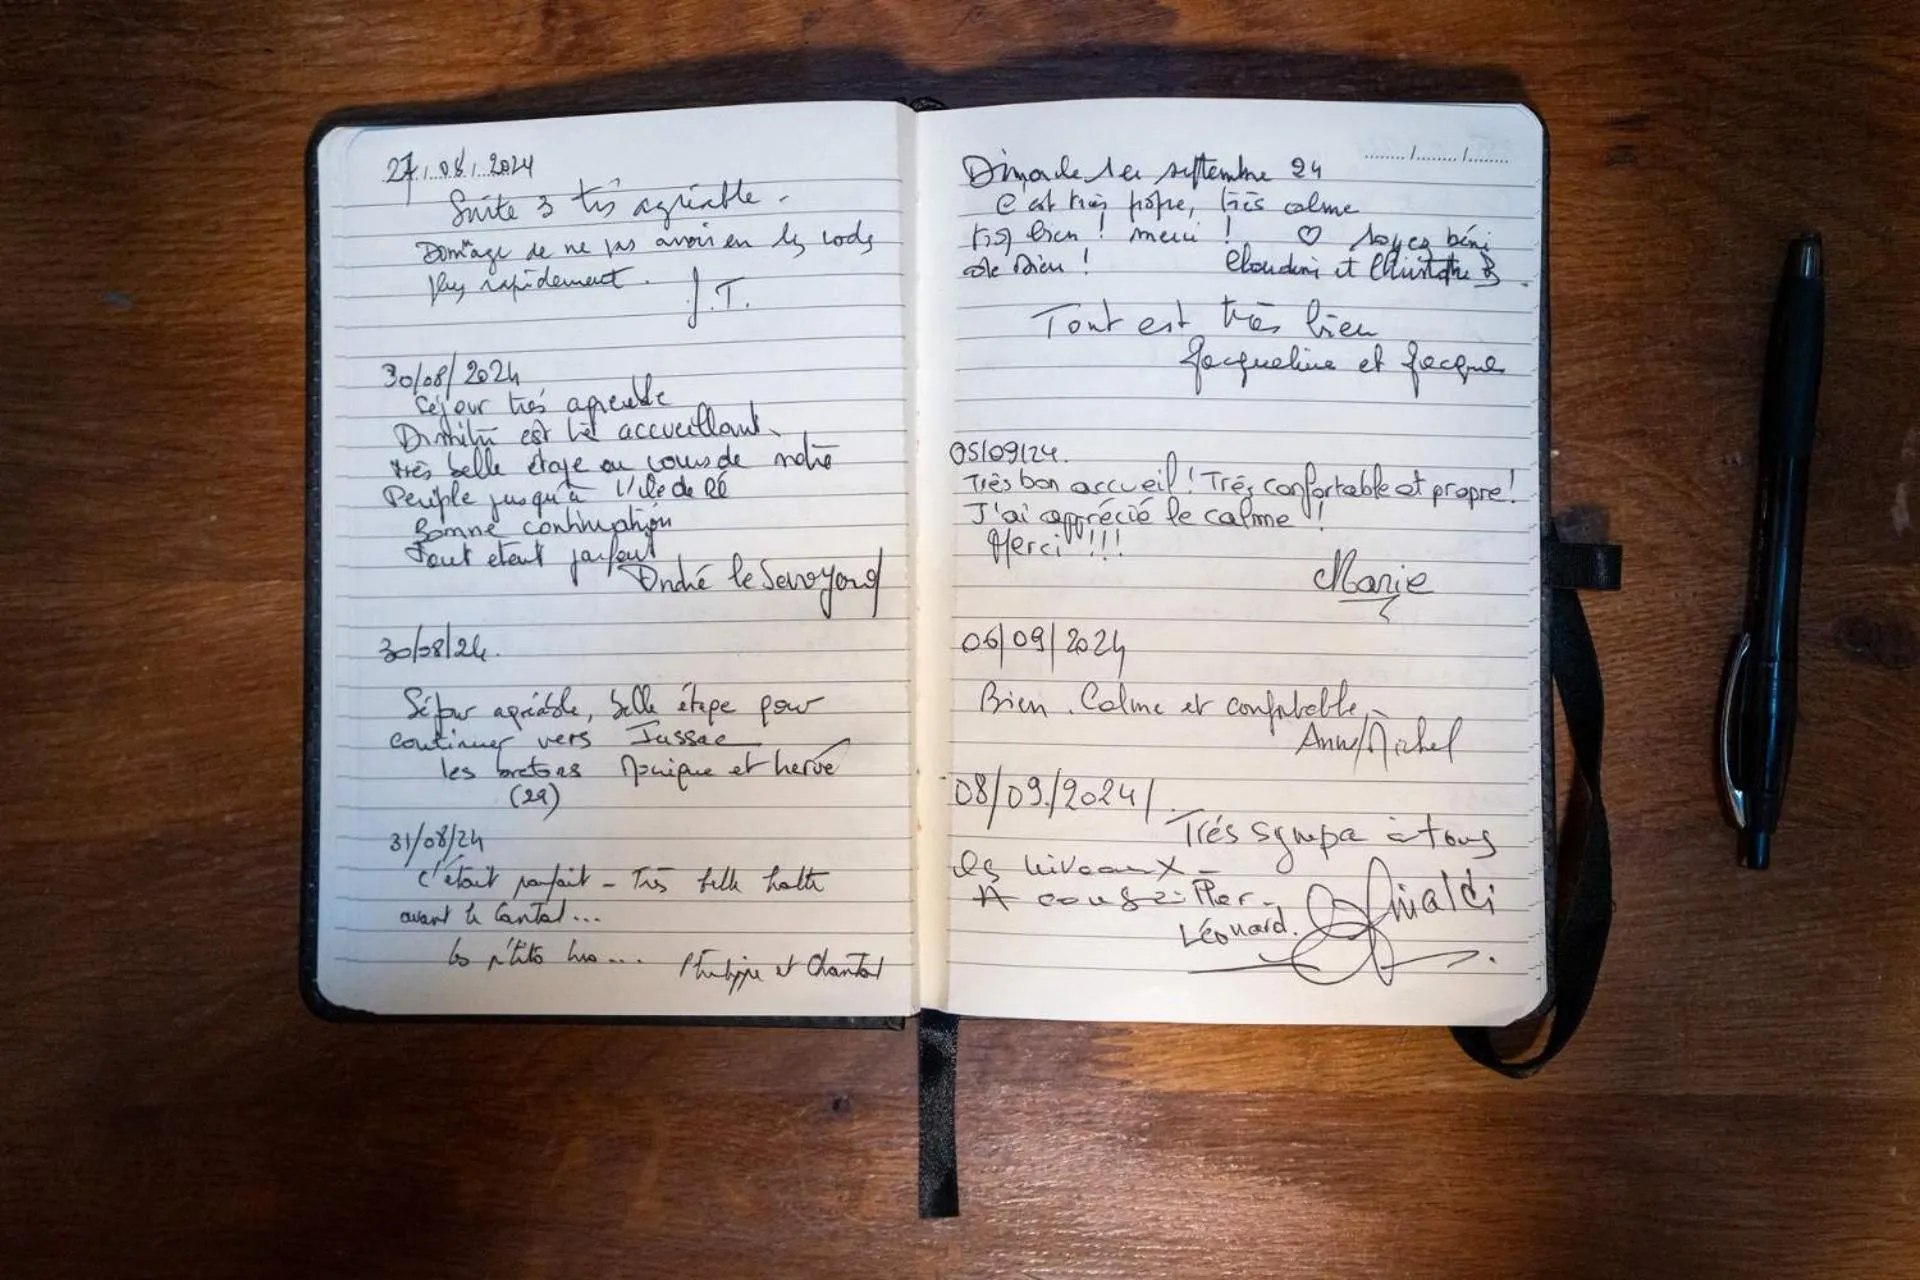 27/08/2024
Suite 3 très agréable.
Dommage de ne pas avoir eu les codes
plus rapidement.
J.T.
30/08/2024
Séjour très agréable
Dimitri est très accueillant.
très belle étape au cours de notre
Periple jusqu'à l'ile de Ré
Bonne continuation
Tout étant parfait
André le Savoyard
30/08/24.
Séjour agréable, belle étape pour
continuer vers Jussac
les bretons Monique et hervé
(29)
31/08/24
C'était parfait - Très belle halte
avant le Cantal...
Les p'tits
Philippe et Chantal
Dimanche 1er septembre 24
...../...../.....
C est très propre, très calme
très bien ! merci ! ♡ Soyez béni
de Dieu !
et Christophe B.
Tout est très bien
Jacqueline et Jacques
05/09/24.
Très bon accueil ! Très confortable et propre !
J'ai apprécié le calme !
Merci !!!
Marie
06/09/2024
Bien. Calme et confortable.
Anne/Michel
08/09/2024/
Très sympa à tous
les niveaux -
A conseiller -
Léonard.